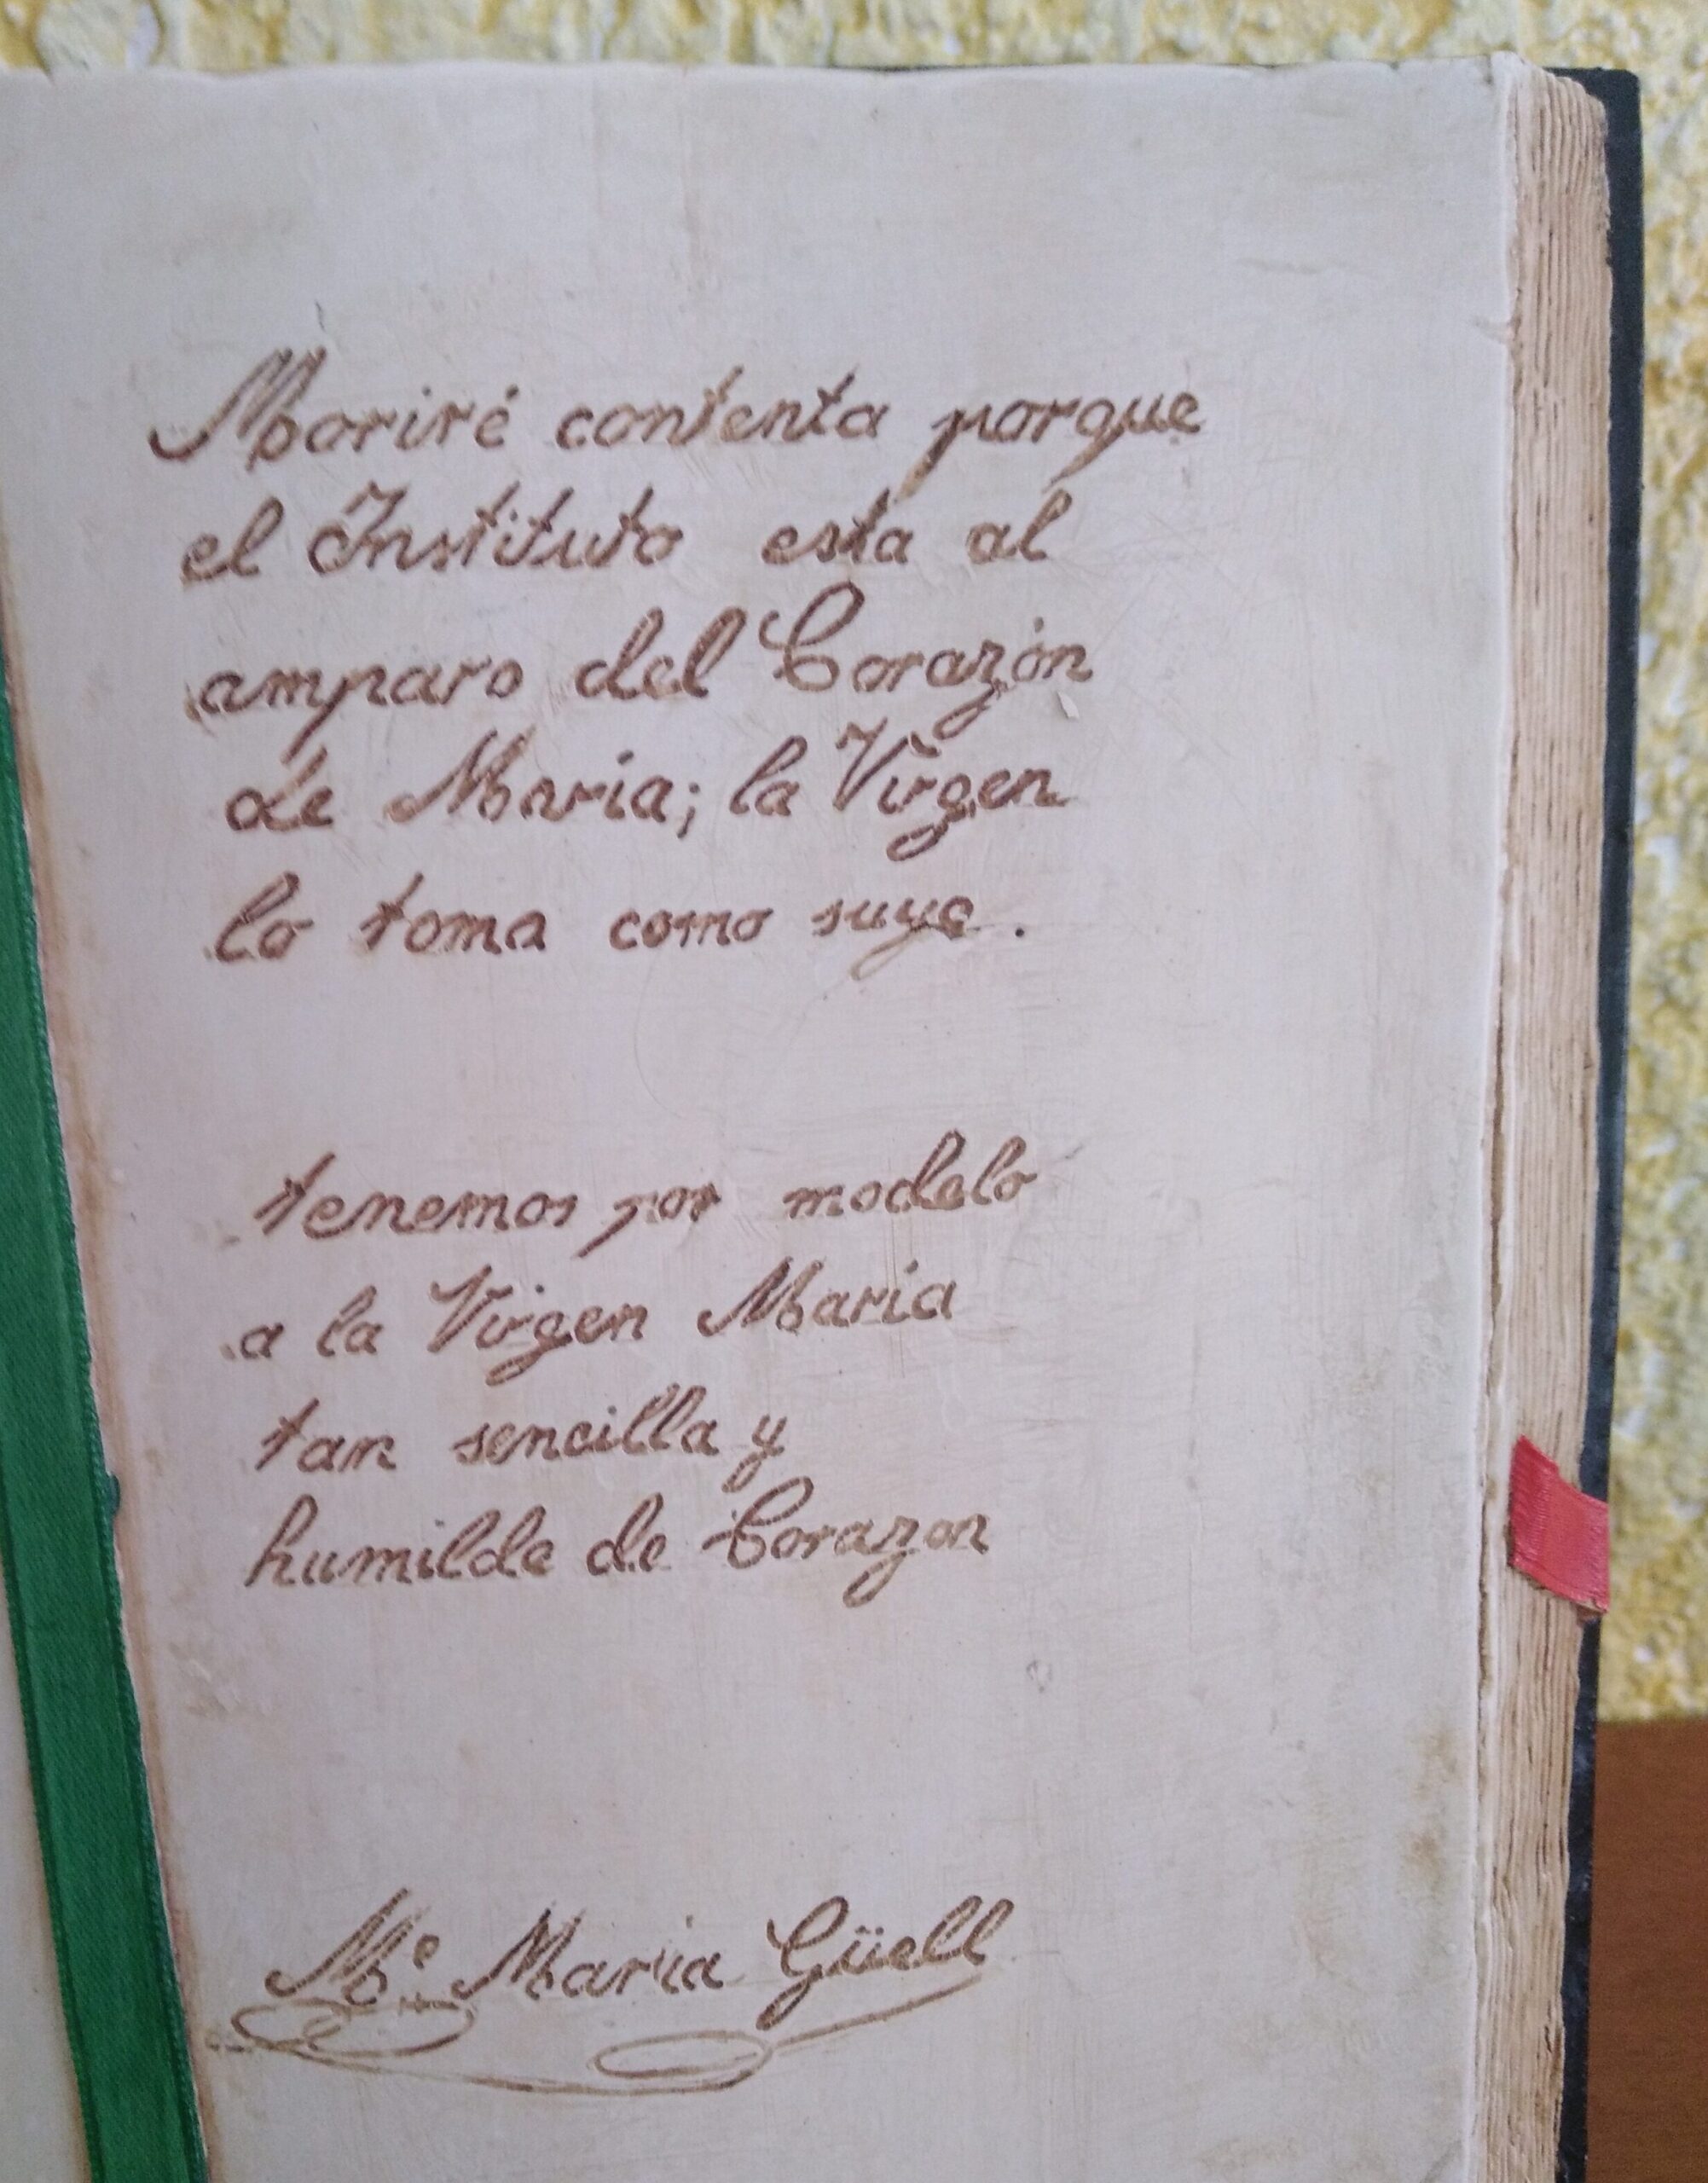 Moriré contenta porque
el Instituto esta al
amparo del Corazón
de María; la Virgen
lo toma como suyo.
tenemos por modelo
a la Virgen María
tan sencilla y
humilde de Corazon
Mᵉ María Güell